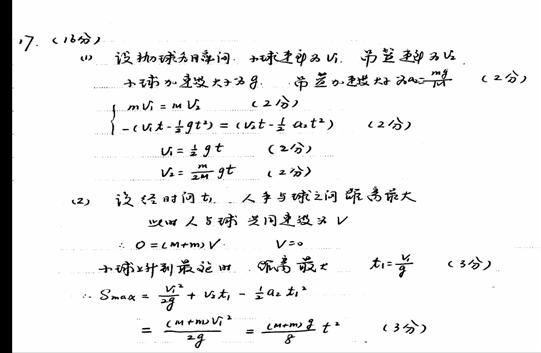 17. (16分)
(1) 设抛球为瞬间 小球速度为V₁ 吊篮速度为V₂
小球加速度大小为g. 吊篮加速度大小为a₂=mg/M (2分)
mV₁=MV₂ (2分)
-(V₁t-½gt²)=(V₂t-½a₂t²) (2分)
V₁=½gt (2分)
V₂=m/2M gt (2分)
(2) 设经时间t₁ 人手与球之间距离最大
此时人与球共同速度为V
∴ 0=(M+m)V. V=0
小球上升到最高时 距离最大 t₁=V₁/g (3分)
∴ Smax=V₁²/2g+V₂t₁-½a₂t₁²
=(M+m)V₁²/2g=(M+m)g/8 t² (3分)